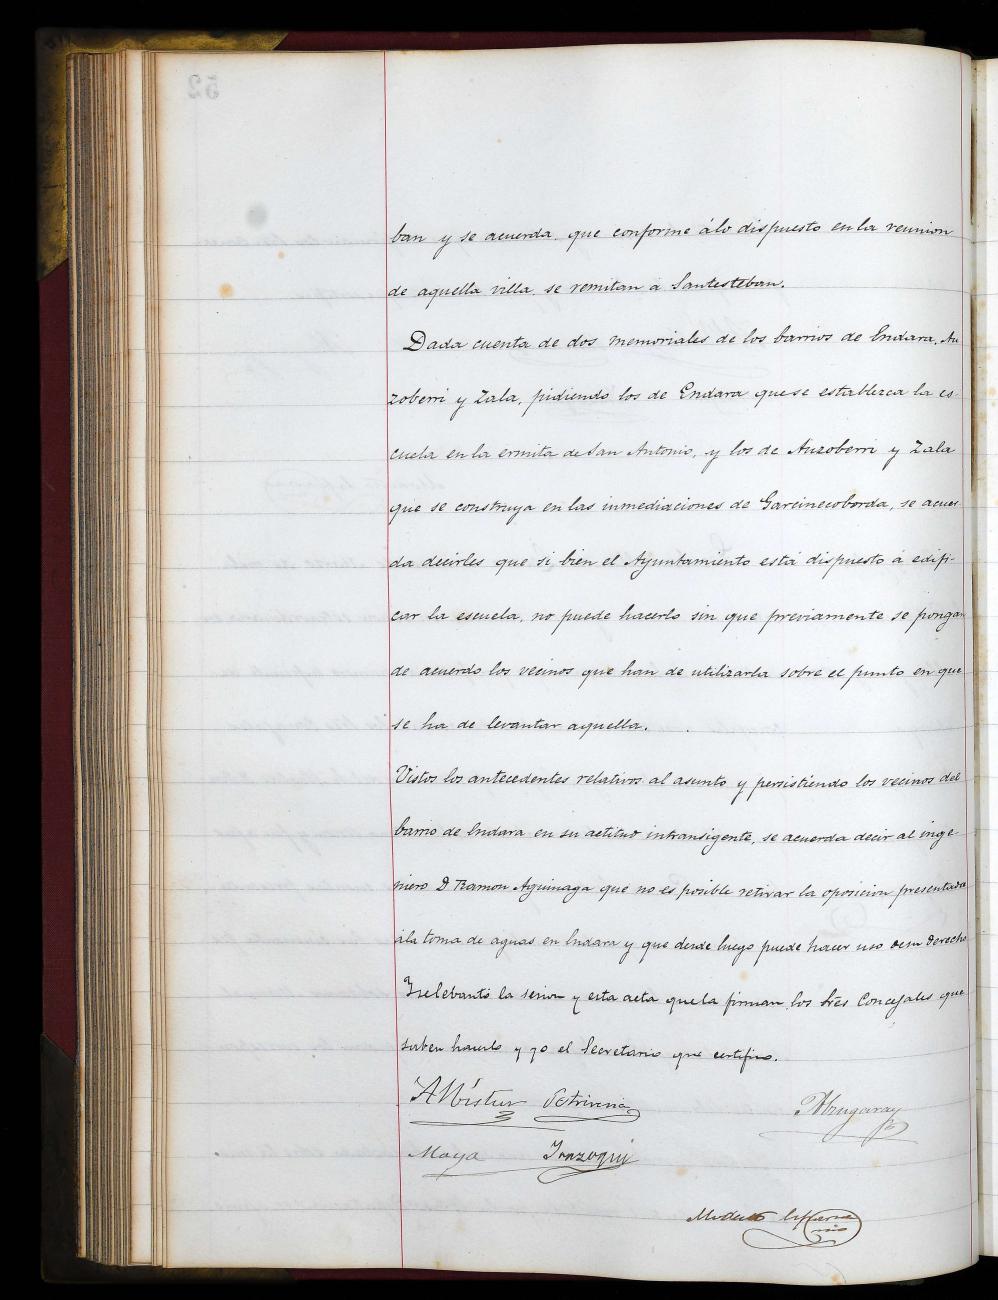 52
ban y se acuerda que conforme álo dispuesto en la reunion
de aquella villa se remitan á Santesteban.
Dada cuenta de dos memoriales de los barrios de Endara, Au
zoberri y Zala, pidiendo los de Endara que se establezca la es-
cuela en la ermita de San Antonio, y los de Auzoberri y Zala
que se construya en las inmediaciones de Garcinecoborda, se acuer-
da decirles que si bien el Ayuntamiento está dispuesto á edifi-
car la escuela, no puede hacerlo sin que previamente se pongan
de acuerdo los vecinos que han de utilizarla sobre el punto en que
se ha de levantar aquella.
Vistos los antecedentes relativos al asunto y persistiendo los vecinos del
barrio de Endara en su actitud intransigente, se acuerda decir al inge-
niero D Ramon Aguinaga que no es posible retirar la oposicion presentada
ála toma de aguas en Endara y que desde luego puede hacer uso de su derecho
Y se lebantó la sesion y esta acta que la firman los Sres Concejales que
saben hacerlo y yo el Secretario que certifico.
Albístur
Maya Irazoqui
Modesto